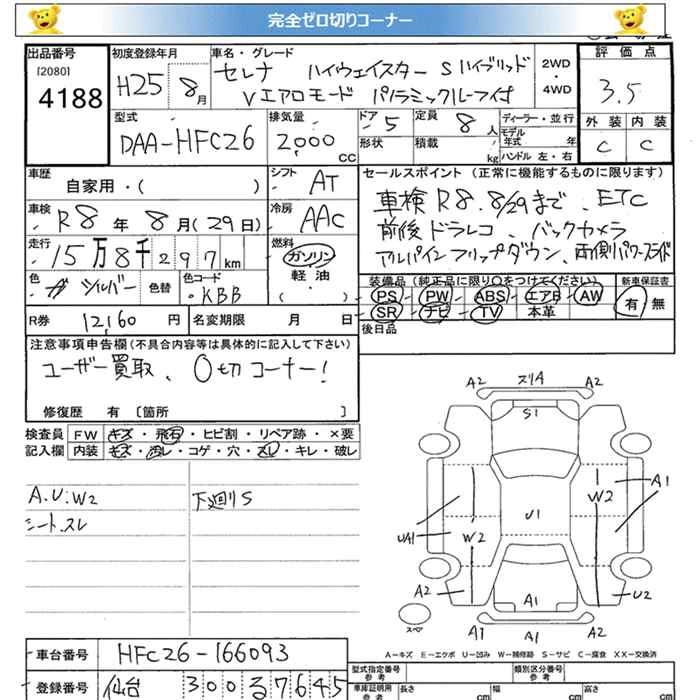 完全ゼロ切りコーナー
出品番号
[2080]
4188
初度登録年月
H25 8月
車名・グレード
セレナ ハイウェイスター S ハイブリッド
V エアロモード パノラミックルーフ付
2WD
・
4WD
評価点
3.5
外装 内装
C C
型式
DAA-HFC26
排気量
2000
CC
ドア 5
定員 8 人
形状
積載 kg
ディーラー・並行
モデル
年式 年
ハンドル 左・右
車歴
自家用・( )
シフト AT
車検
R8年 8月(29日)
冷房 AAC
走行
15万8千297km
燃料
ガソリン
軽・油
( )
色 ガ シルバー 色替
色コード
KBB
セールスポイント (正常に機能するものに限ります)
車検R8.8/29まで、ETC
前後ドラレコ、バックカメラ
アルパインフリップダウン、両側パワースライド
装備品 (純正品に限り○をつけてください)
PS PW ABS エアB AW
SR ナビ TV 本革
新車保証書
有 無
R券 12,160 円
名変期限 月 日
後日品
注意事項申告欄(不具合内容等は具体的に記入して下さい)
ユーザー買取、0切コーナー!
修復歴 有 [箇所 ]
検査員
記入欄
FW キズ・飛石・ヒビ割・リペア跡・×要
内装 キズ・汚レ・コゲ・穴・スレ・キレ・破レ
A.U:W2
シートスレ
下廻りS
A2 スリA A2
S1
A1
W2
U1
UA1
W2
A2
U2
A1
A1 A1 A2
スペア
A-キズ E-エクボ U-凹み W-補修跡 S-サビ C-腐食 XX-交換済
車台番号 HFC26-166093
登録番号 仙台 300 る 7645
型式指定番号
参考
類別区分番号
参考
車庫証明用
参考
長さ cm
幅 cm
高さ cm